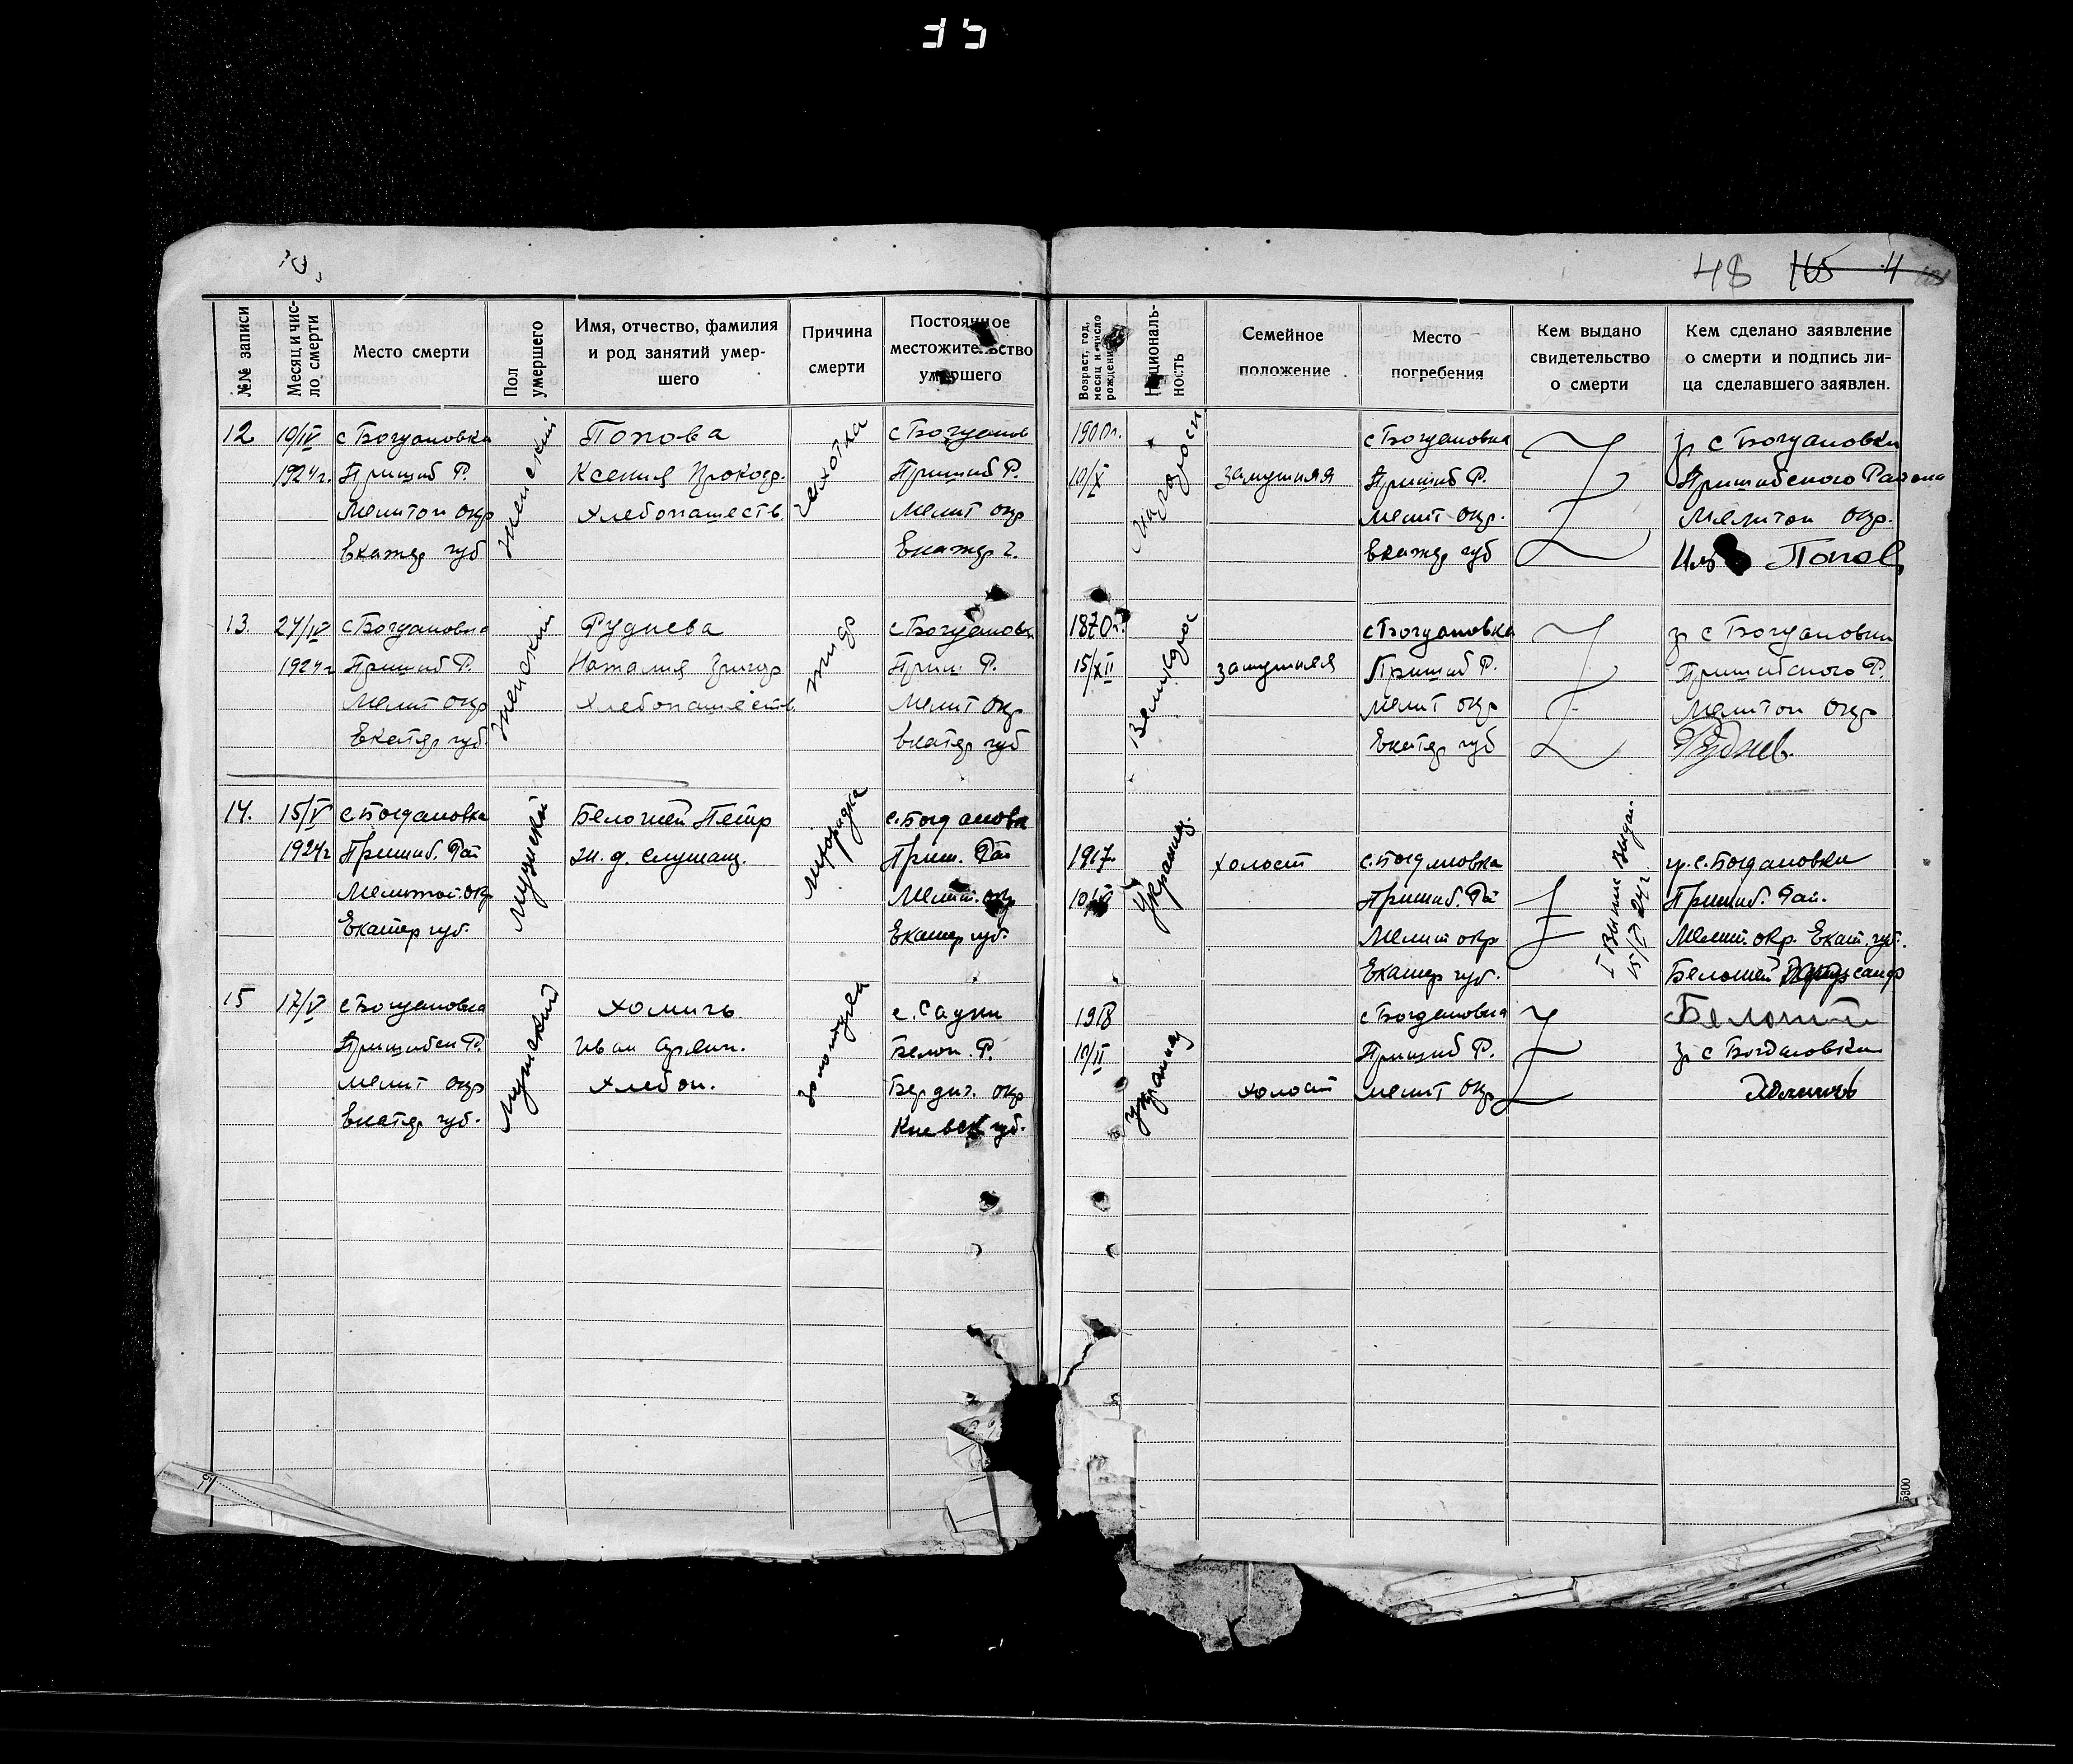 35
48 165 4
№№ записи
Месяц и число смерти
Место смерти
Пол умершего
Имя, отчество, фамилия и род занятий умершего
Причина смерти
Постоянное местожительство умершего
Возраст, год, месяц и число рождения
Национальность
Семейное положение
Место погребения
Кем выдано свидетельство о смерти
Кем сделано заявление о смерти и подпись лица сделавшего заявлен.
12
10/IV
1924г.
с Богдановка
Пришиб Р.
Мелитоп окр
Екатер губ
Женский
Попова
Ксения Прокоф.
Хлебопашеств.
чахотка
с Богданов
Пришиб Р.
Мелит окр
Екатер г.
1900г.
10/X
замужняя
с Богдановка
Пришиб Р.
Мелит окр.
Екатер губ
гр с Богдановки
Пришибского Района
Мелитоп окр.
Попов
13
24/IV
1924г
с Богдановка
Пришиб Р.
Мелит окр
Екатер губ.
Женский
Руднева
Наталия Григор
Хлебопашеств.
тиф
с Богдановк
Приш. Р.
Мелит окр
Екатер губ
1870г.
15/XII
Великорос
замужняя
с Богдановка
Пришиб Р.
Мелит окр
Екатер губ
гр с Богдановки
Пришибского Р.
Мелитоп окр
Руднев.
14.
15/V
1924г
с. Богдановка
Пришиб. Рай
Мелитоп. окр
Екатер губ.
Мужской
Белошей Петр
лихорадка
с. Богдановк
Приш. Рай
Мелит. окр
Екатер губ.
1917.
Украинец.
холост
с. Богдановка
Пришиб. Рай
Мелит окр
Екатер губ.
15/V 24г
гр. с. Богдановки
Пришиб. Рай.
Мелит. окр. Екат. губ.
Белошей
15
17/V
с Богдановка
Пришибск Р.
Мелит окр
Екатер губ.
Мужской
Хомичь
Иван
Хлебоп.
золотухи
Белоп. Р.
Бердич. окр
Киевск губ.
1918
10/II
украинец
холост
с Богдановка
Пришиб Р.
Мелит окр
гр с Богдановки
5300